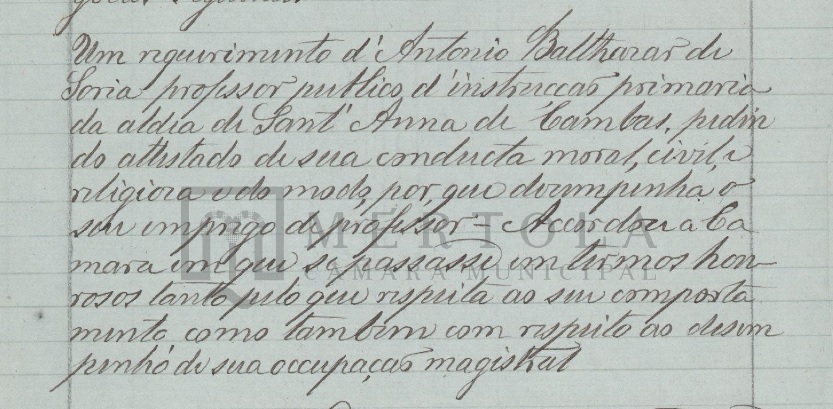 Um requerimento d'Antonio Balthazar de
Soria professor publico d'instrucçaõ primaria
da aldia de Sant'Anna de Cambas, pedin
do attestado de sua conducta moral, civil, e
religioza e do modo, por, que desempenha o
seu emprego de professor = Accordou a Ca
mara em que se passasse em termos hon-
rosos tanto pelo que respeita ao seu comporta
mento como tambem com respeito ao desem
penhó de sua occupaçaõ magistral
MÉRTOLA
CÂMARA MUNICIPAL